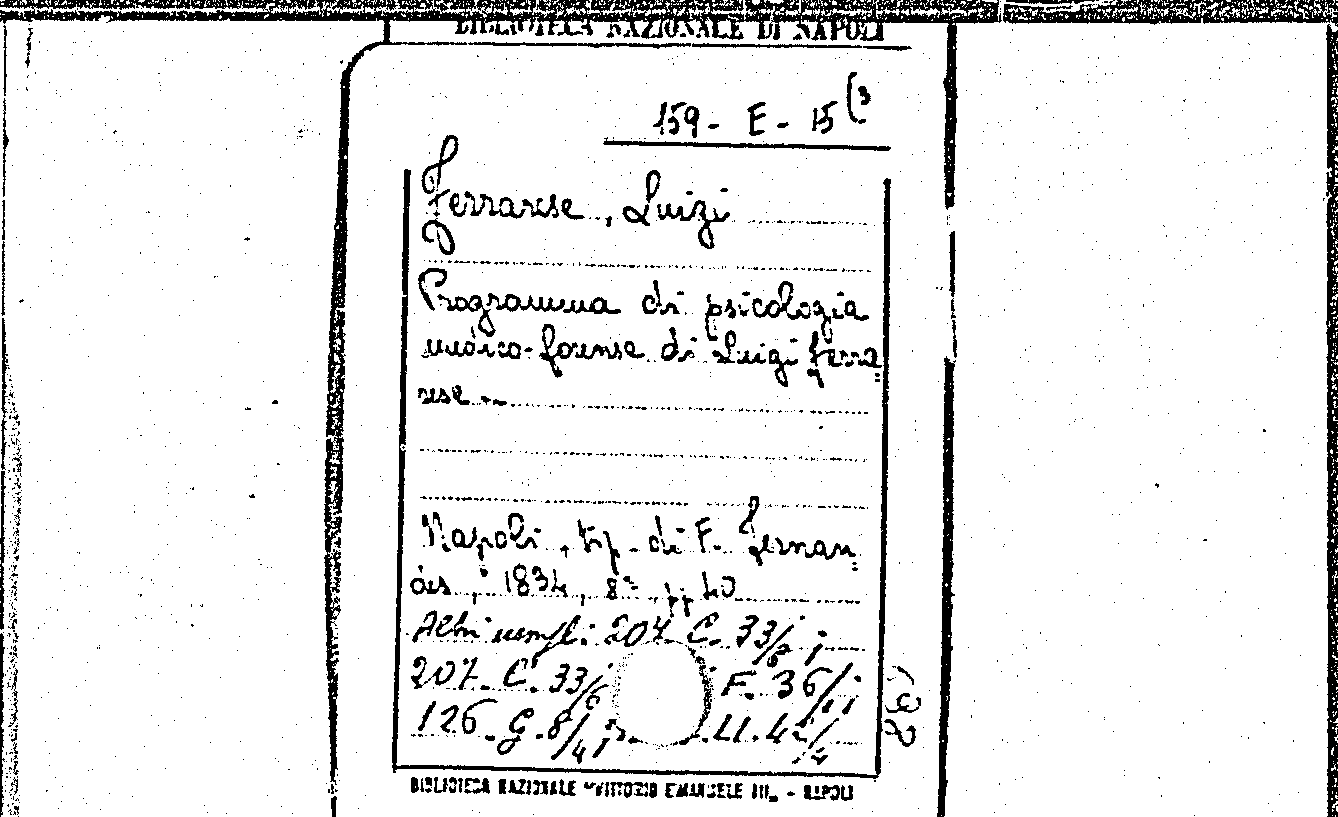 BIBLIOTECA NAZIONALE DI NAPOLI
159 - E - 15 (3
Ferrarese, Luigi
Programma di psicologia
medico-forense di Luigi Ferra=
rese --
Napoli, tip. di F. Fernan=
des, 1834, 8°, pp 40
Altri esempl: 207. C. 33/6;
207. C. 33/6 F. 36/11;
126. G. 8/4; 42/2
BIBLIOTECA NAZIONALE "VITTORIO EMANUELE III" - NAPOLI